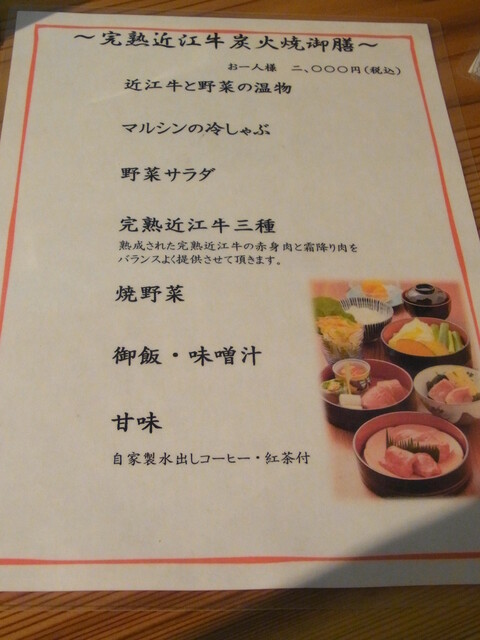 ～完熟近江牛炭火焼御膳～
お一人様 二、〇〇〇円(税込)
近江牛と野菜の温物
マルシンの冷しゃぶ
野菜サラダ
完熟近江牛三種
熟成された完熟近江牛の赤身肉と霜降り肉を
バランスよく提供させて頂きます。
焼野菜
御飯・味噌汁
甘味
自家製水出しコーヒー・紅茶付